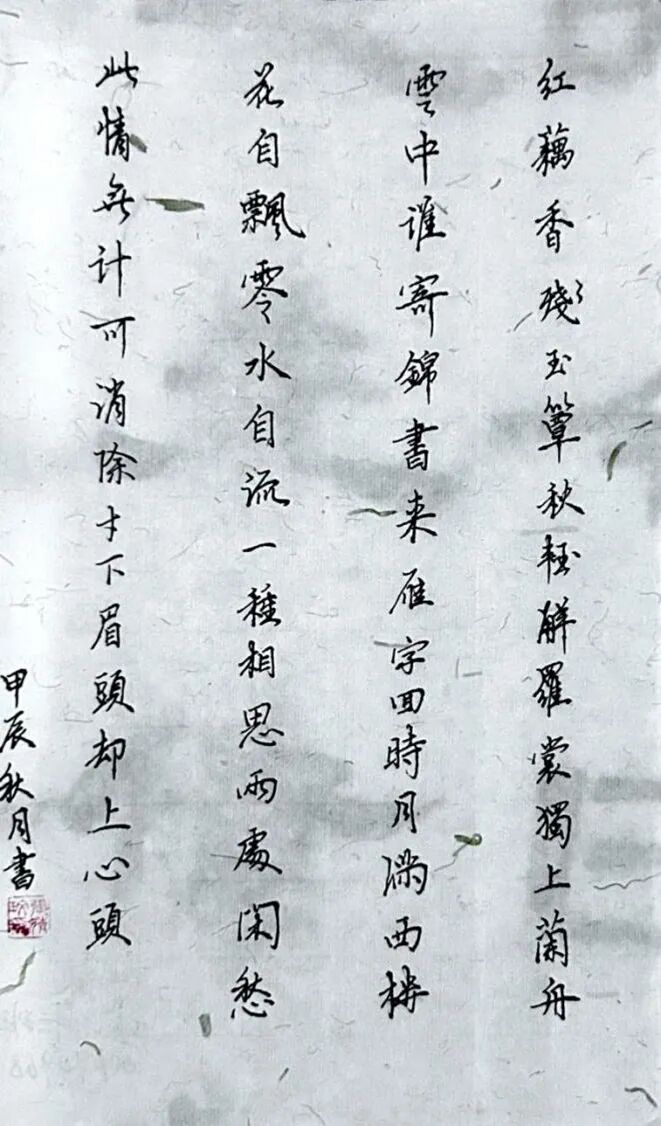 红藕香殘玉簟秋輕解羅裳獨上蘭舟
雲中誰寄錦書来雁字回時月滿西楼
花自飄零水自流一種相思兩處閑愁
此情無計可消除才下眉頭却上心頭
甲辰秋月書